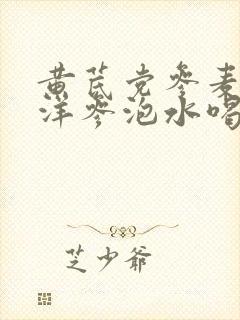 黄芪党参麦
洋参泡水喝
芝少爷